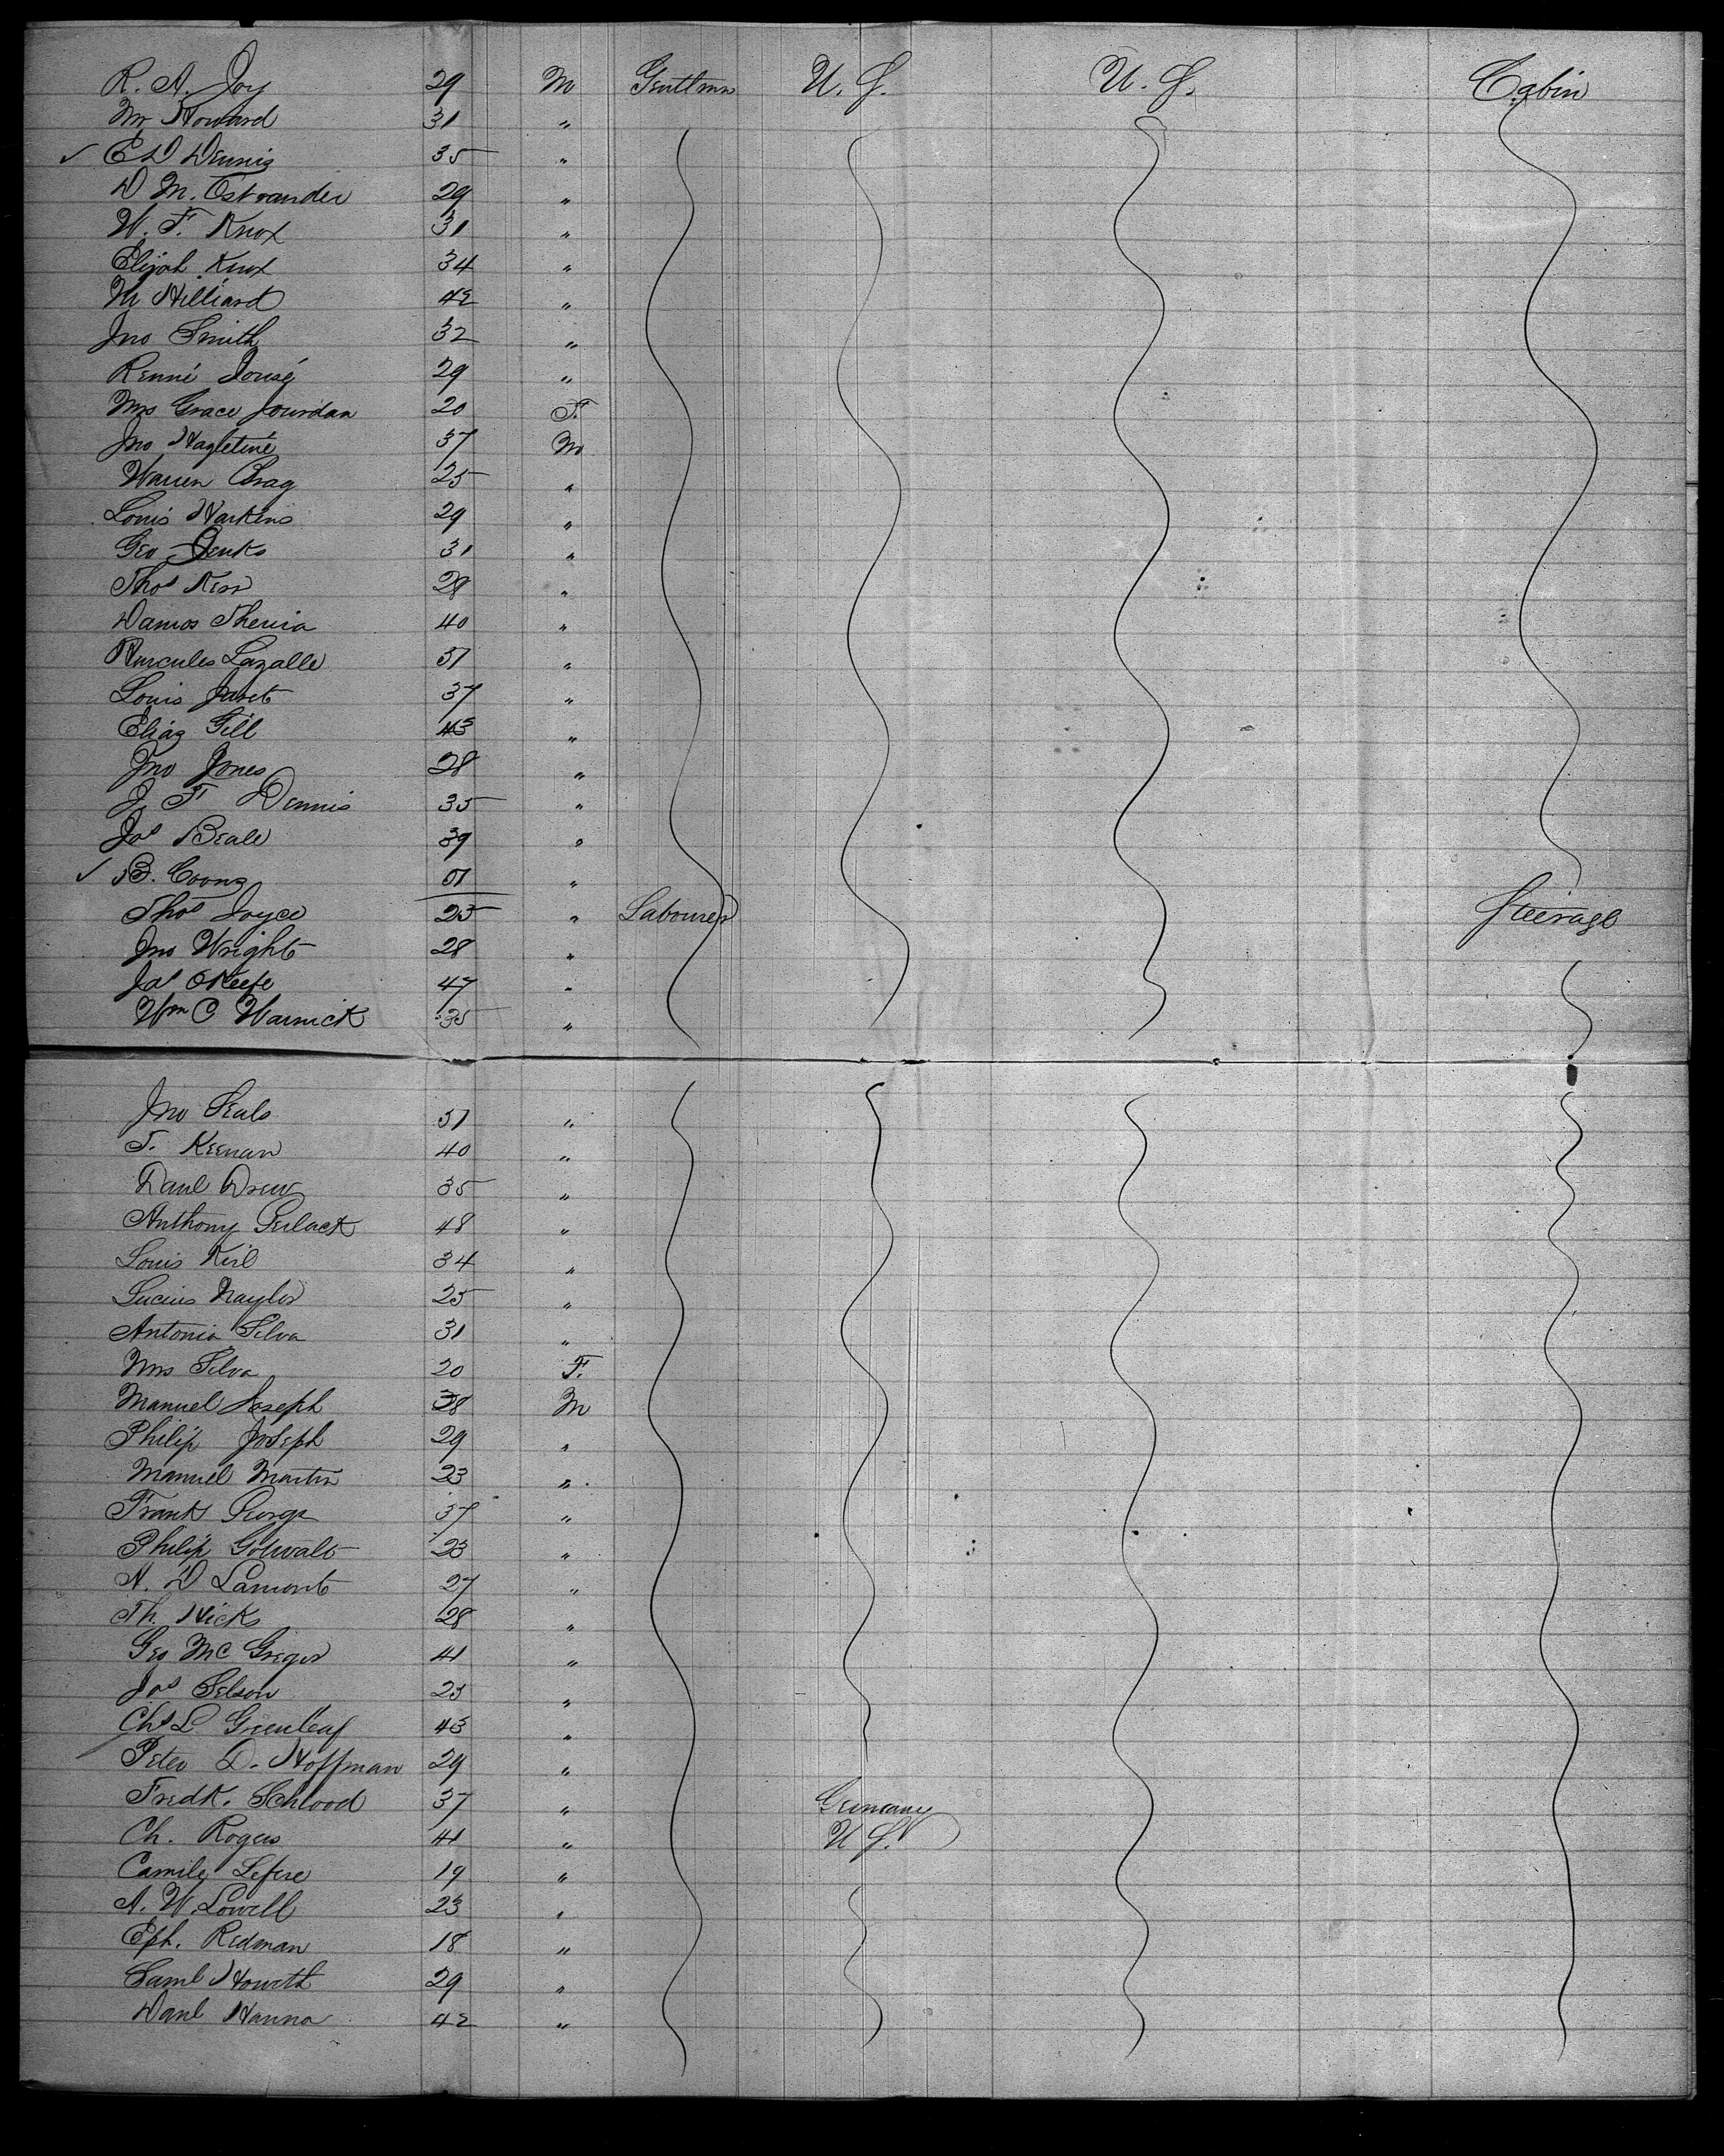 R. A. Joy 29 M Genttmn U. S. U. S. Cabin
Mr Howard 31 "
✓ E D Dennis 35 "
D M. Ostrander 29 "
W. F. Knox 31 "
Elijah Knox 34 "
M Hilliard 42 "
Jno Smith 32 "
Renné 29 "
Mrs Grace Jourdan 20 F.
Jno Hazletine 37 M
Warren 25 "
Louis Harkins 29 "
Geo Jenks 31 "
Thos Kerr 28 "
Damos 40 "
Hurcules Lazalle 51 "
Louis 37 "
Elias Gill 43 "
Jno Jones 28 "
J. F Dennis 35 "
Jos Beale 39 "
✓ B. Coons 51 "
Thos Joyce 25 " Labourer Steerage
Jno Wright 28 "
Jas OKeefe 47 "
Wm C Warnick 35 "
Jno Seals 51 "
T. Keenan 40 "
Danl Drew 35 "
Anthony 48 "
Louis Kiel 34 "
Lucius Naylor 25 "
Antonia Silva 31 "
Mrs Silva 20 F.
Manuel Joseph 38 M
Philip Joseph 29 "
Manuel Martin 23 "
Frank George 37 "
Philip Gotwalt 23 "
A. D Lamont 27 "
Th. Hicks 28 "
Geo McGregor 41 "
Jos Selson 23 "
Chs L. Greenleaf 43 "
Peter D. Hoffman 29 "
Fredk. Schlood 37 " Germany
Ch. Rogers 41 " U S.
Camile Lefere 19 "
A. W. Lowell 23 "
Eph. Redman 18 "
Saml Howith 29 "
Danl Hanna 42 "